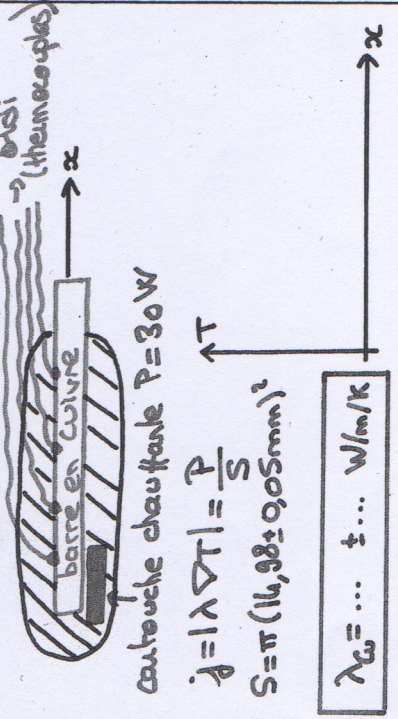 Didi
→ (thermocouples)
→ x
barre en cuivre
cartouche chauffante P=30W
j=|λ∇T| = P/S
S=π(14,98±0,05mm)²
T
x
λcu = ... ± ... W/m/K